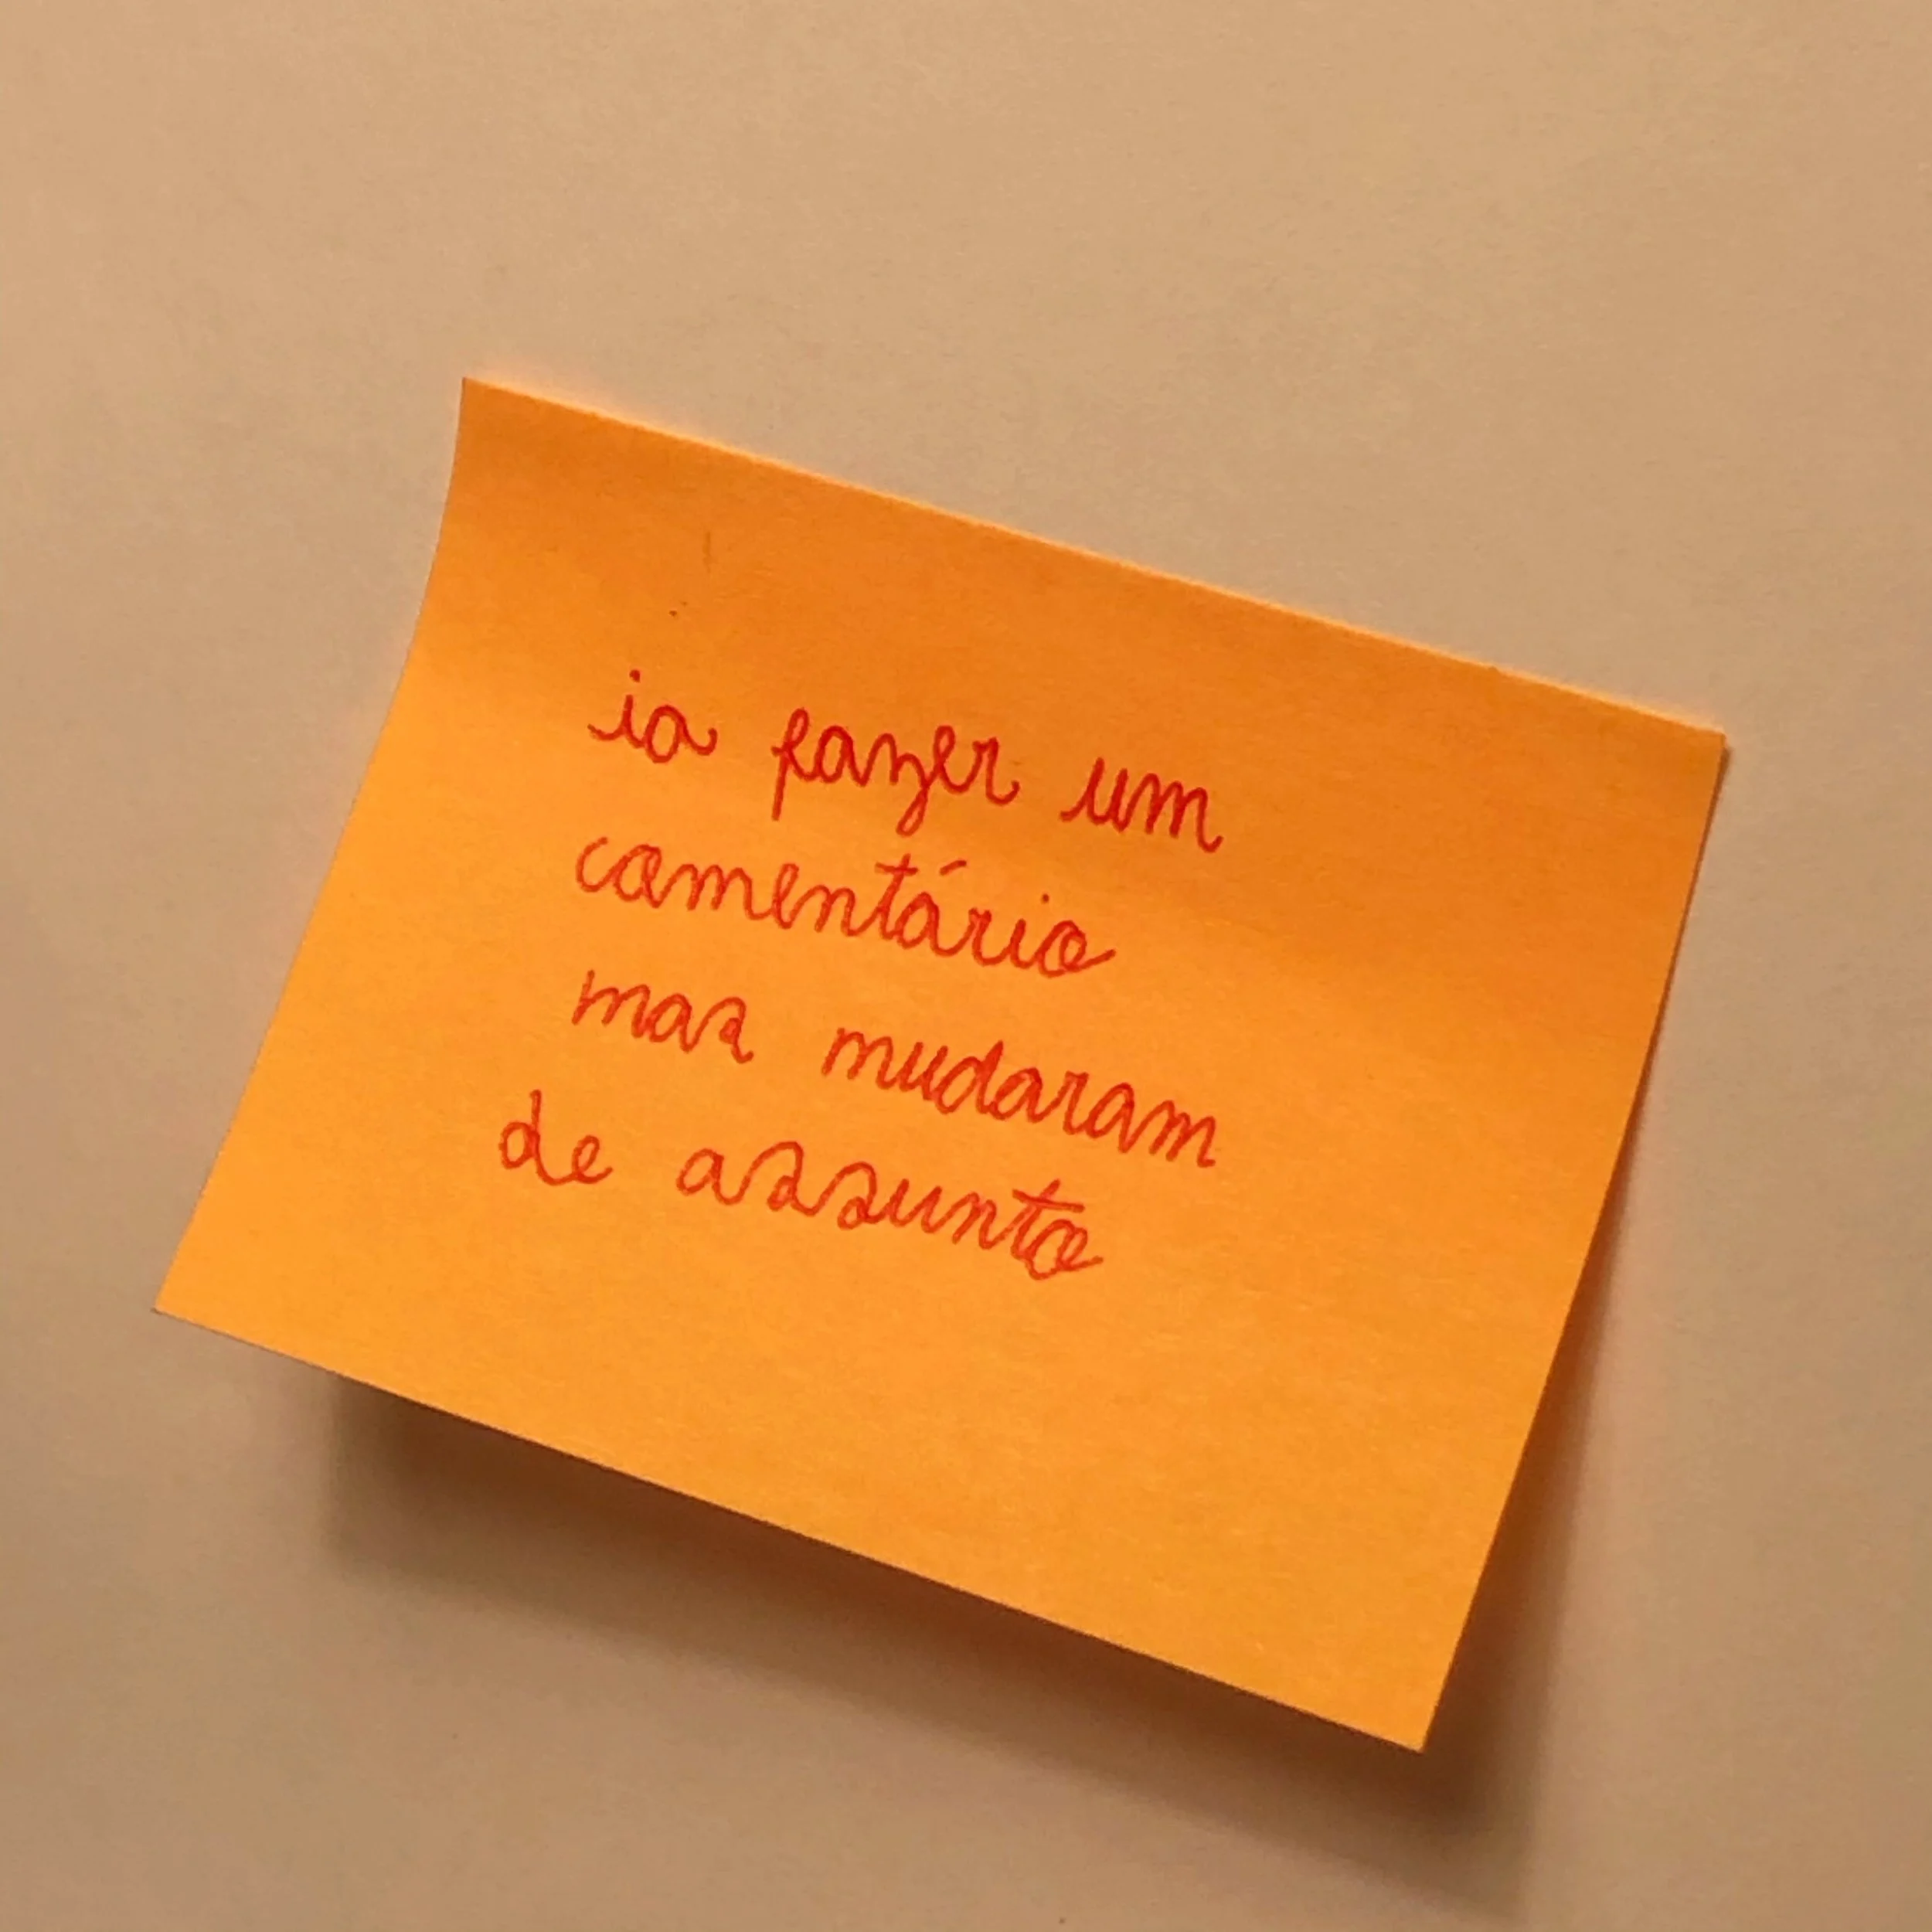 ia fazer um
comentário
mas mudaram
de assunto